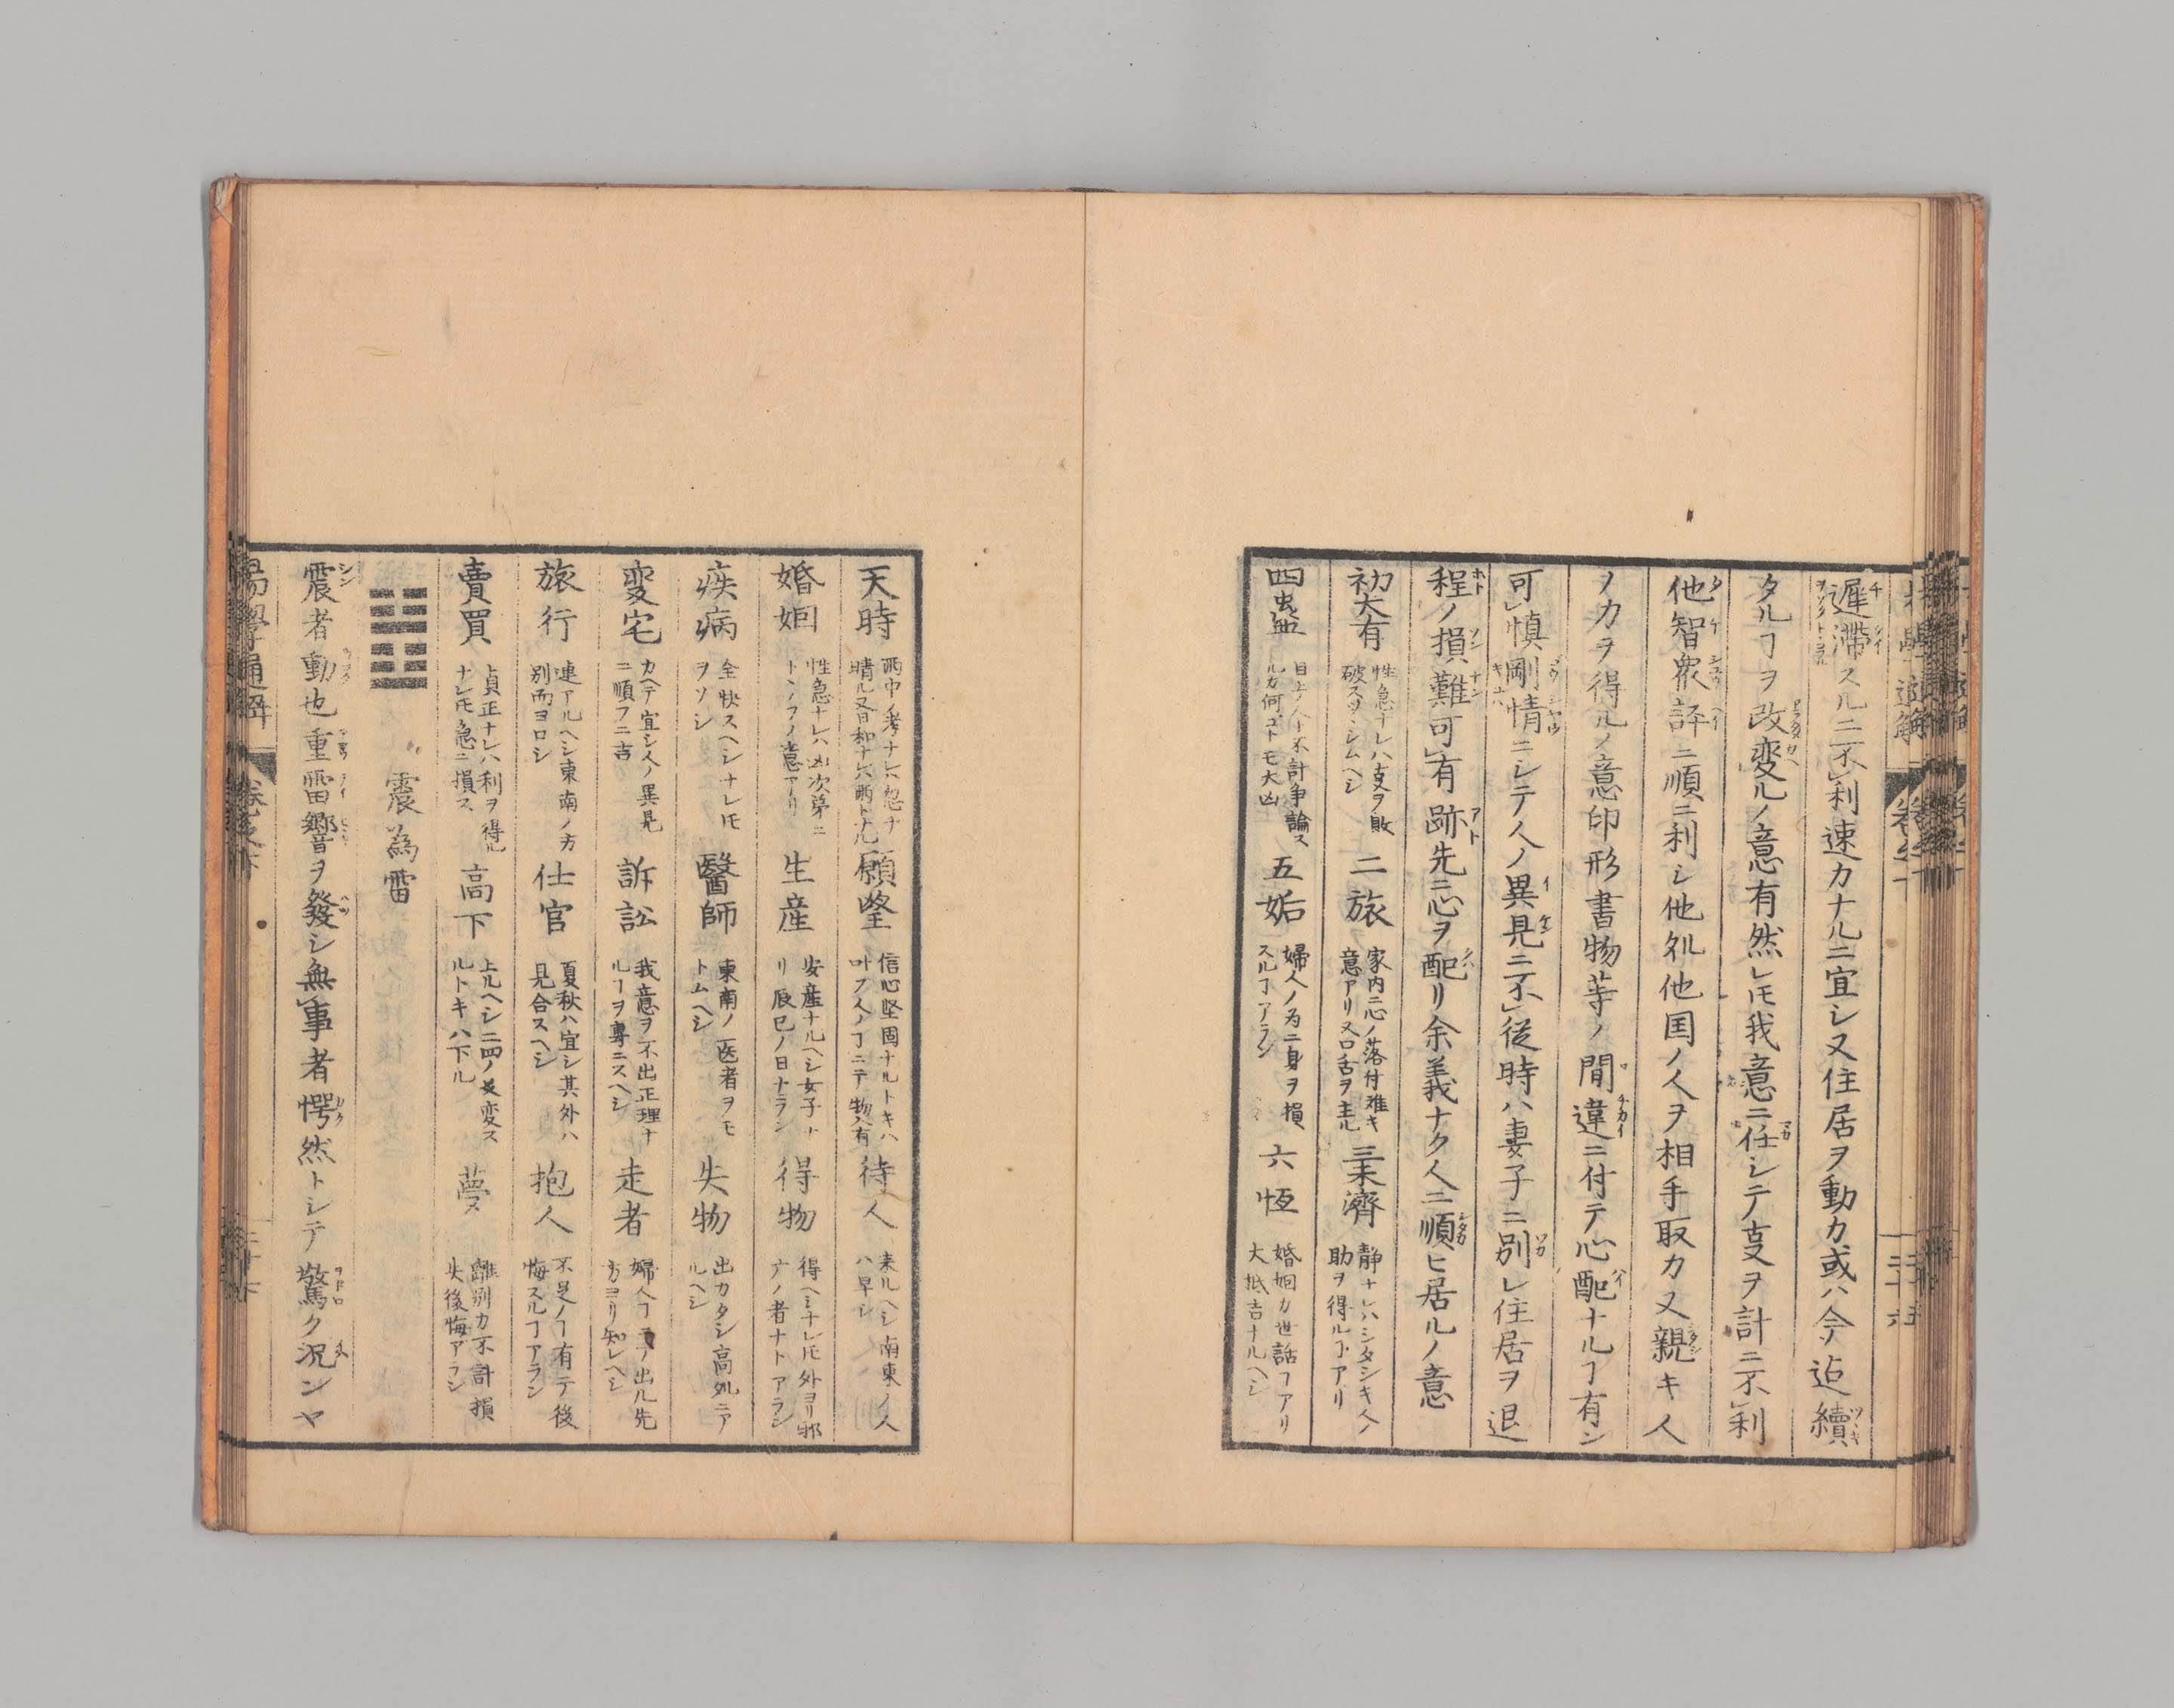 遲滯スルニ不利速カナルニ宜シ又住居ヲ動カ或ハ今迠續
タルヿヲ改変ルノ意有然レ𪜈我意ニ任シテ叓ヲ計ニ不利
他智衆評ニ順ニ利シ他処他国ノ人ヲ相手取カ又親キ人
ノカヲ得ルノ意印形書物等ノ間違ニ付テ心配ナルヿ有ン
可慎剛情ニシテ人ノ異見ニ不従時ハ妻子ニ別レ住居ヲ退
程ノ損難可有跡先ニ心ヲ配リ余義ナク人ニ順ヒ居ルノ意
初大有 性急ナレハ叓ヲ敗
破スヲシムヘシ
二旅 家内ニ心ノ落付難キ
意アリ又口舌ヲ主ル
三未濟 静ナレハシタシキ人ノ
助ヲ得ルヿアリ
四蠱 目上ノ人ト不計争論ス
ルカ何ゴトモ大凶
五姤 婦人ノ為ニ身ヲ損
スルヿアラン
六恆 婚姻カ世話ヿアリ
大抵吉ナルヘシ
天時 雨中ノ考ナレハ忽ナ
晴ル又日和ナレハ雨トナル
願望 信心堅固ナルトキハ
叶フ人ノヿニテ物入有
待人 来ルヘシ南東ノ人
ハ早シ
婚姻 性急ナレハ凶次第ニ
トヽノフノ意アリ
生産 安産ナルヘシ女子ト
リ辰巳ノ日ナラン
得物 得ヘシナレ𪜈外ヨリ邪
ナノ者ナトアラン
疾病 全快スヘシナレ𪜈
ヲソシ
醫師 東南ノ医者ヲモ
トムヘシ
失物 出カタシ高処ニア
ルヘシ
変宅 カヘテ宜シ人ノ異見
ニ順フニ吉
訴訟 我意ヲ不出正理ナ
ルヿヲ専ニスヘシ
走者 婦人ヿヨノ出ル先
方ヨリ知レヘシ
旅行 連アルヘシ東南ノ方
別而ヨロシ
仕官 夏秋ハ宜シ其外ハ
見合スヘシ
抱人 不足ノヿ有テ後
悔スルヿアラン
賣買 貞正ナレハ利ヲ得ル
ナレ𪜈急ニ損ス
高下 上ルヘシ二四ノ爻変ス
ルトキハ下ル
夢 離別カ不計損
失後悔アラン
震為雷
震者動也重雷響ヲ發シ無事者愕然トシテ驚ク況ンヤ